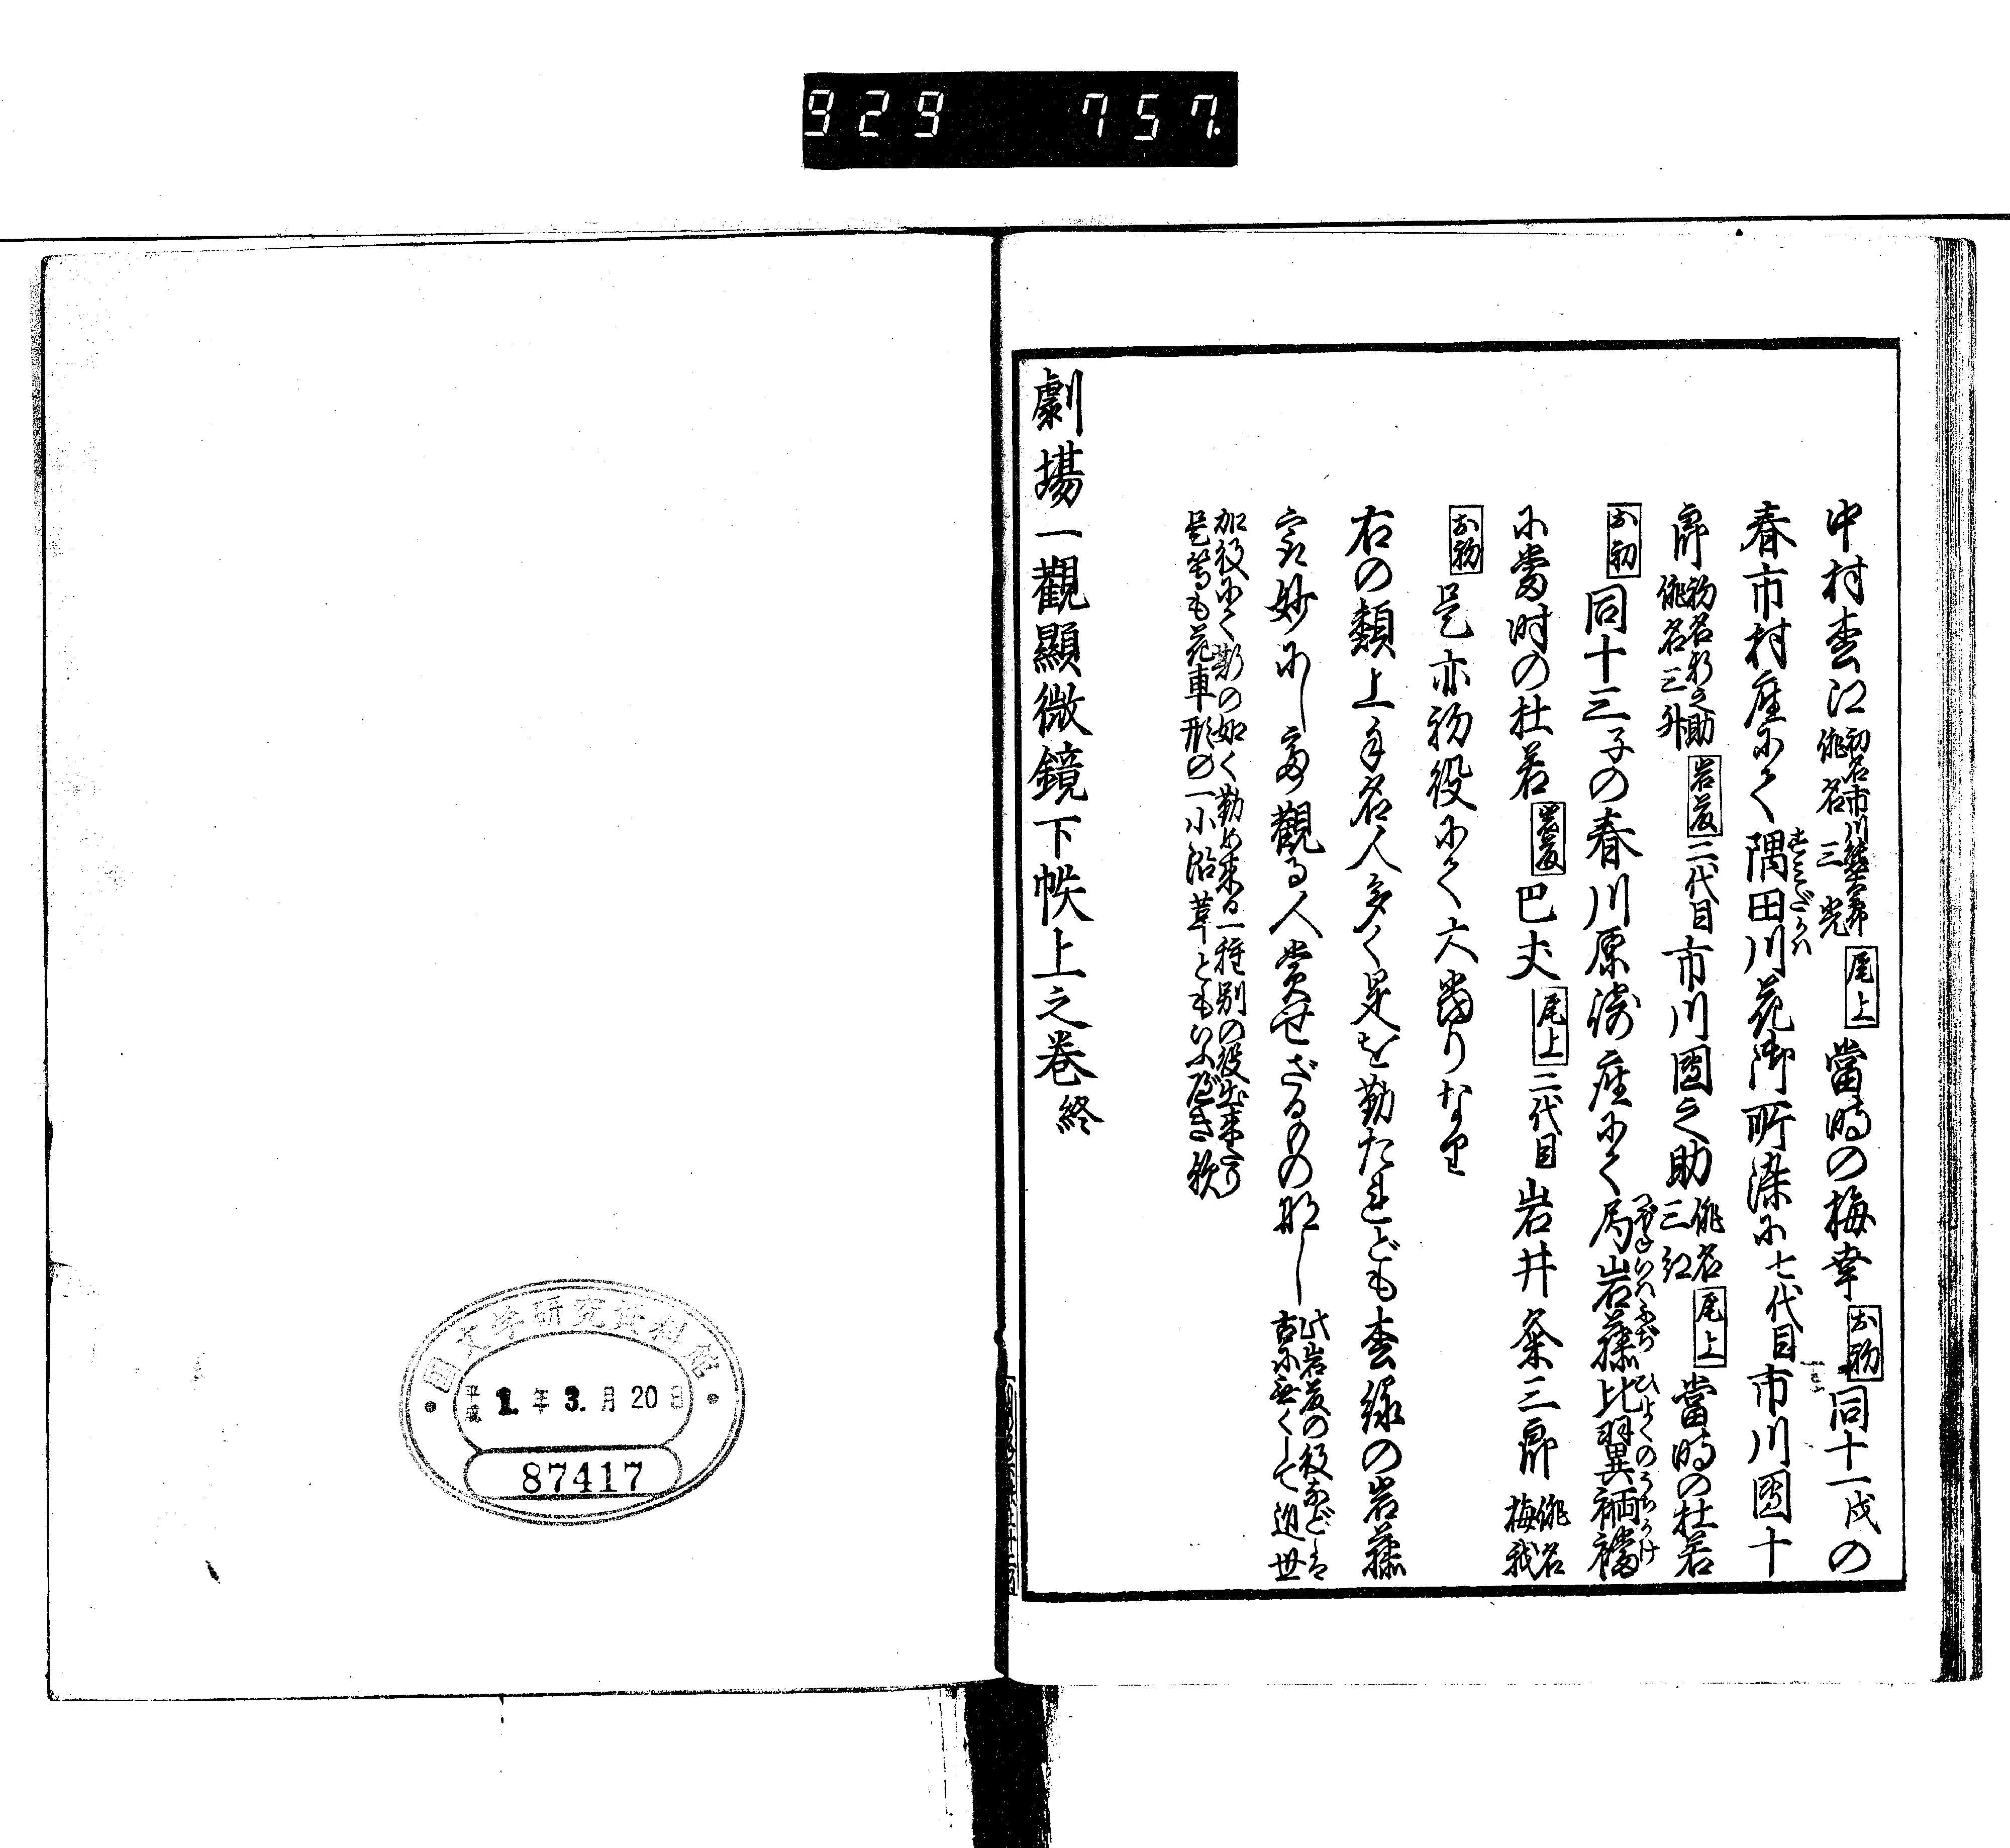 929 757.
中村松江 初名市川熊太郎 俳名三光 尾上 當時の梅幸 お初 同十一戌の
春市村座にて隅田川花御所染に七代目市川團十
すみだがハ
郎 初名新之助 俳名三升 岩藤 二代目市川團之助 俳名三紅 尾上 當時の杜若
お初 同十三子の春川原崎座にて局岩藤比翼裲襠
つぼねいハふぢ ひよくのうちかけ
に當時の杜若 岩藤 巴丈 尾上 二代目岩井粂三郎 俳名梅我
お初 是亦初役にて大當りなり
右の類上手名人多く是を勤たれども松緑の岩藤
尤妙にして觀る人賞せざるもの那し 此岩藤の役などハ古に無くして近世
加役にて斯の如く勤め来る一種別の役出来たり
是等も花車形の一小沿革ともいふべき歟
劇場一觀顯微鏡下帙上之巻終
国文学研究資料館
平成 1.年 3.月 20日
87417